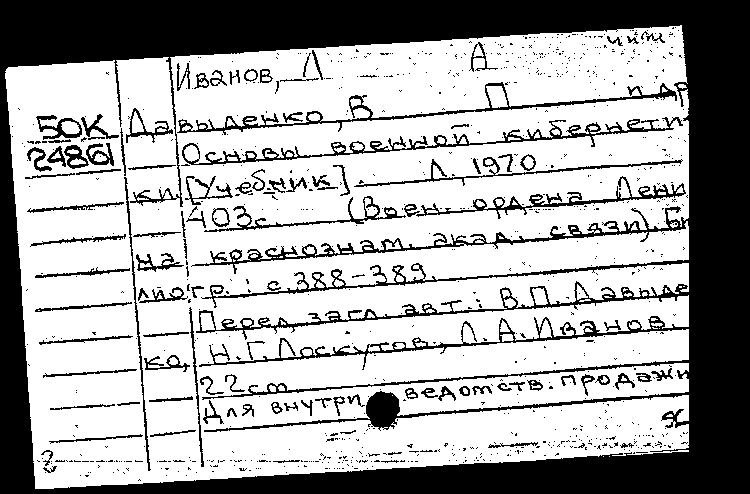 чит
Иванов, Л А
50К Давыденко, В П и др
24861 Основы военной кибернети-
ки. [Учебник]. Л., 1970.
403с. (Воен. ордена Лени
на краснознам. акад. связи). Би
лиогр.: с.388-389.
Перед загл. авт.: В.П. Давыде
ко, Н.Г. Лоскутов, Л.А. Иванов.
22cm
Для внутри ведомств. продажи
2